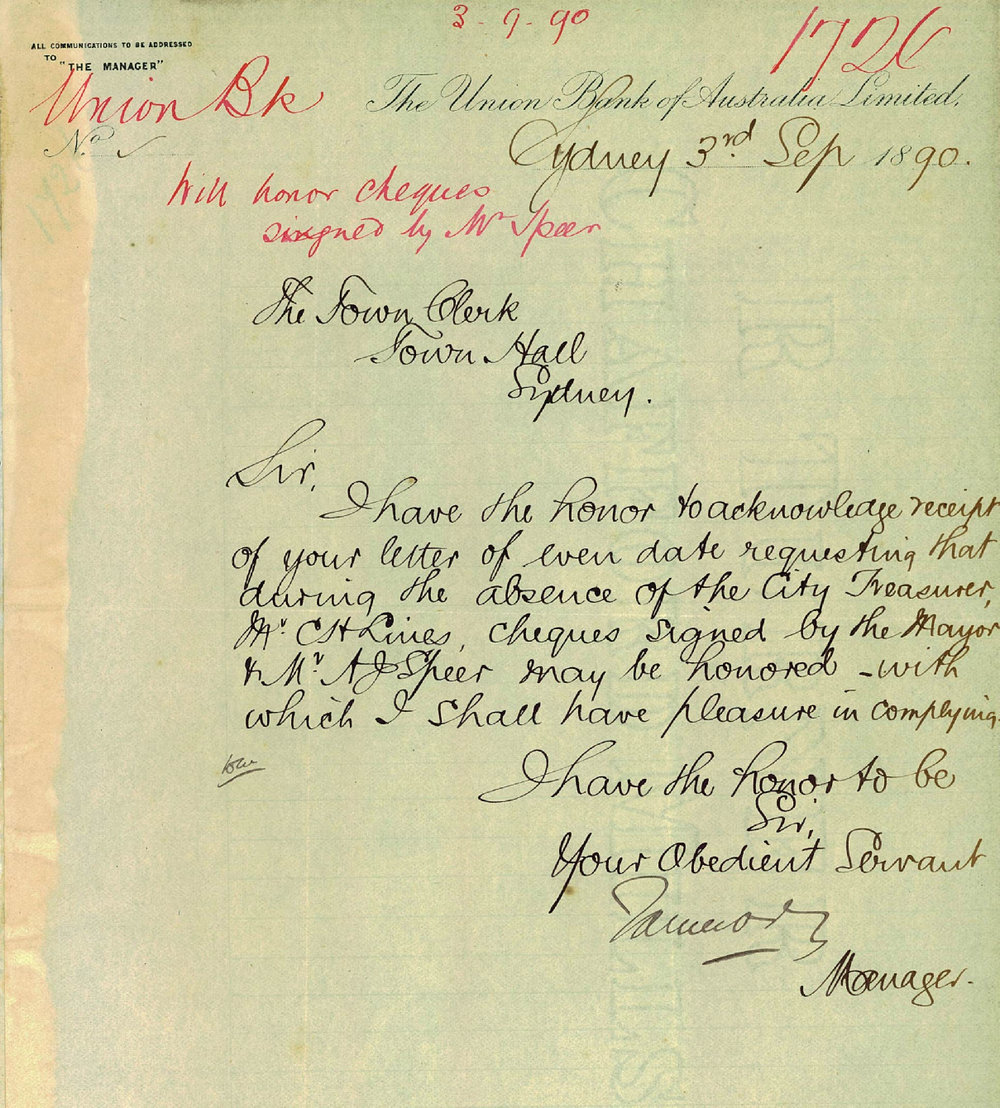 3-9-90
1726
ALL COMMUNICATIONS TO BE ADDRESSED
TO "THE MANAGER"
Union Bk
The Union Bank of Australia Limited.
No.
Sydney 3rd. Sep 1890.
Will honor cheques
signed by Mr Speer
The Town Clerk
Town Hall
Sydney.
Sir,
I have the honor to acknowledge receipt
of your letter of even date requesting that
during the absence of the City Treasurer,
Mr. C H Lines, cheques signed by the Mayor
& Mr A J Speer may be honored – with
which I shall have pleasure in complying.
I have the honor to be
Sir,
Your Obedient Servant
Manager.